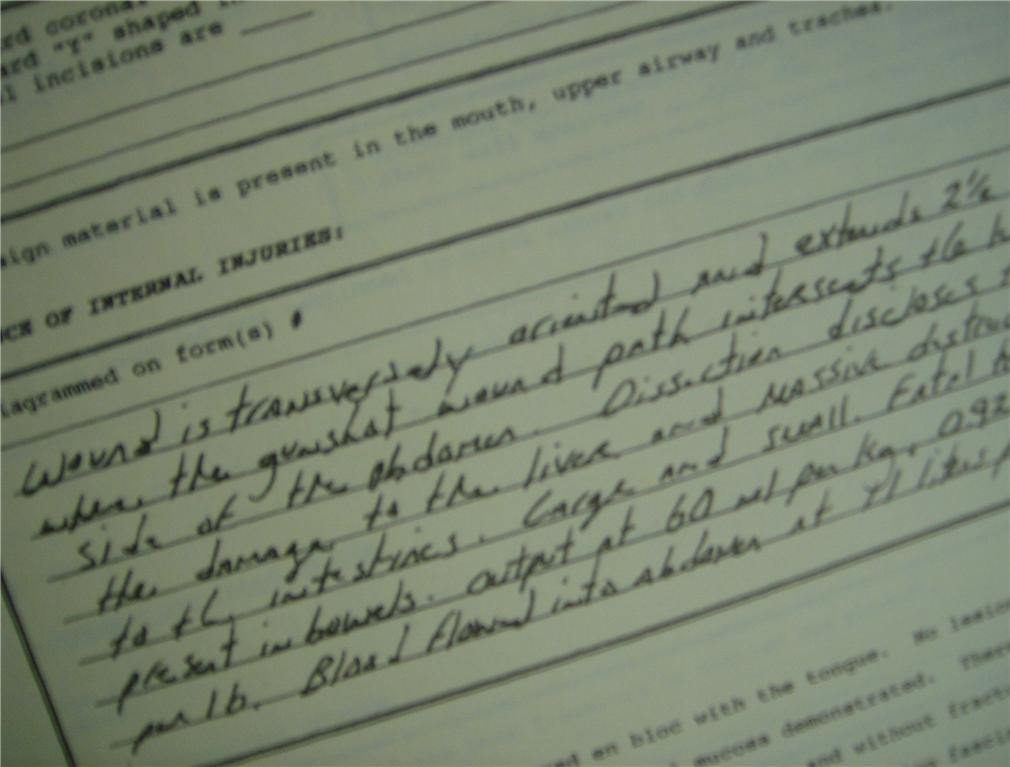 rd coronal
ard "Y" shaped in
l incisions are
eign material is present in the mouth, upper airway and trachea.
CE OF INTERNAL INJURIES:
iagrammed on form(s) #
Wound is transversely oriented and extends 2½
where the gunshot wound path intersects the
side of the abdomen. Dissection discloses
the damage to the liver and massive destruc
to the intestines. Large and small. Fatal
present in bowels. output at 60 ml per kg. 0.92
per lb. Blood flowed into abdomen at
ed en bloc with the tongue. No lesion
mucosa demonstrated. There
and without fractu
fascia